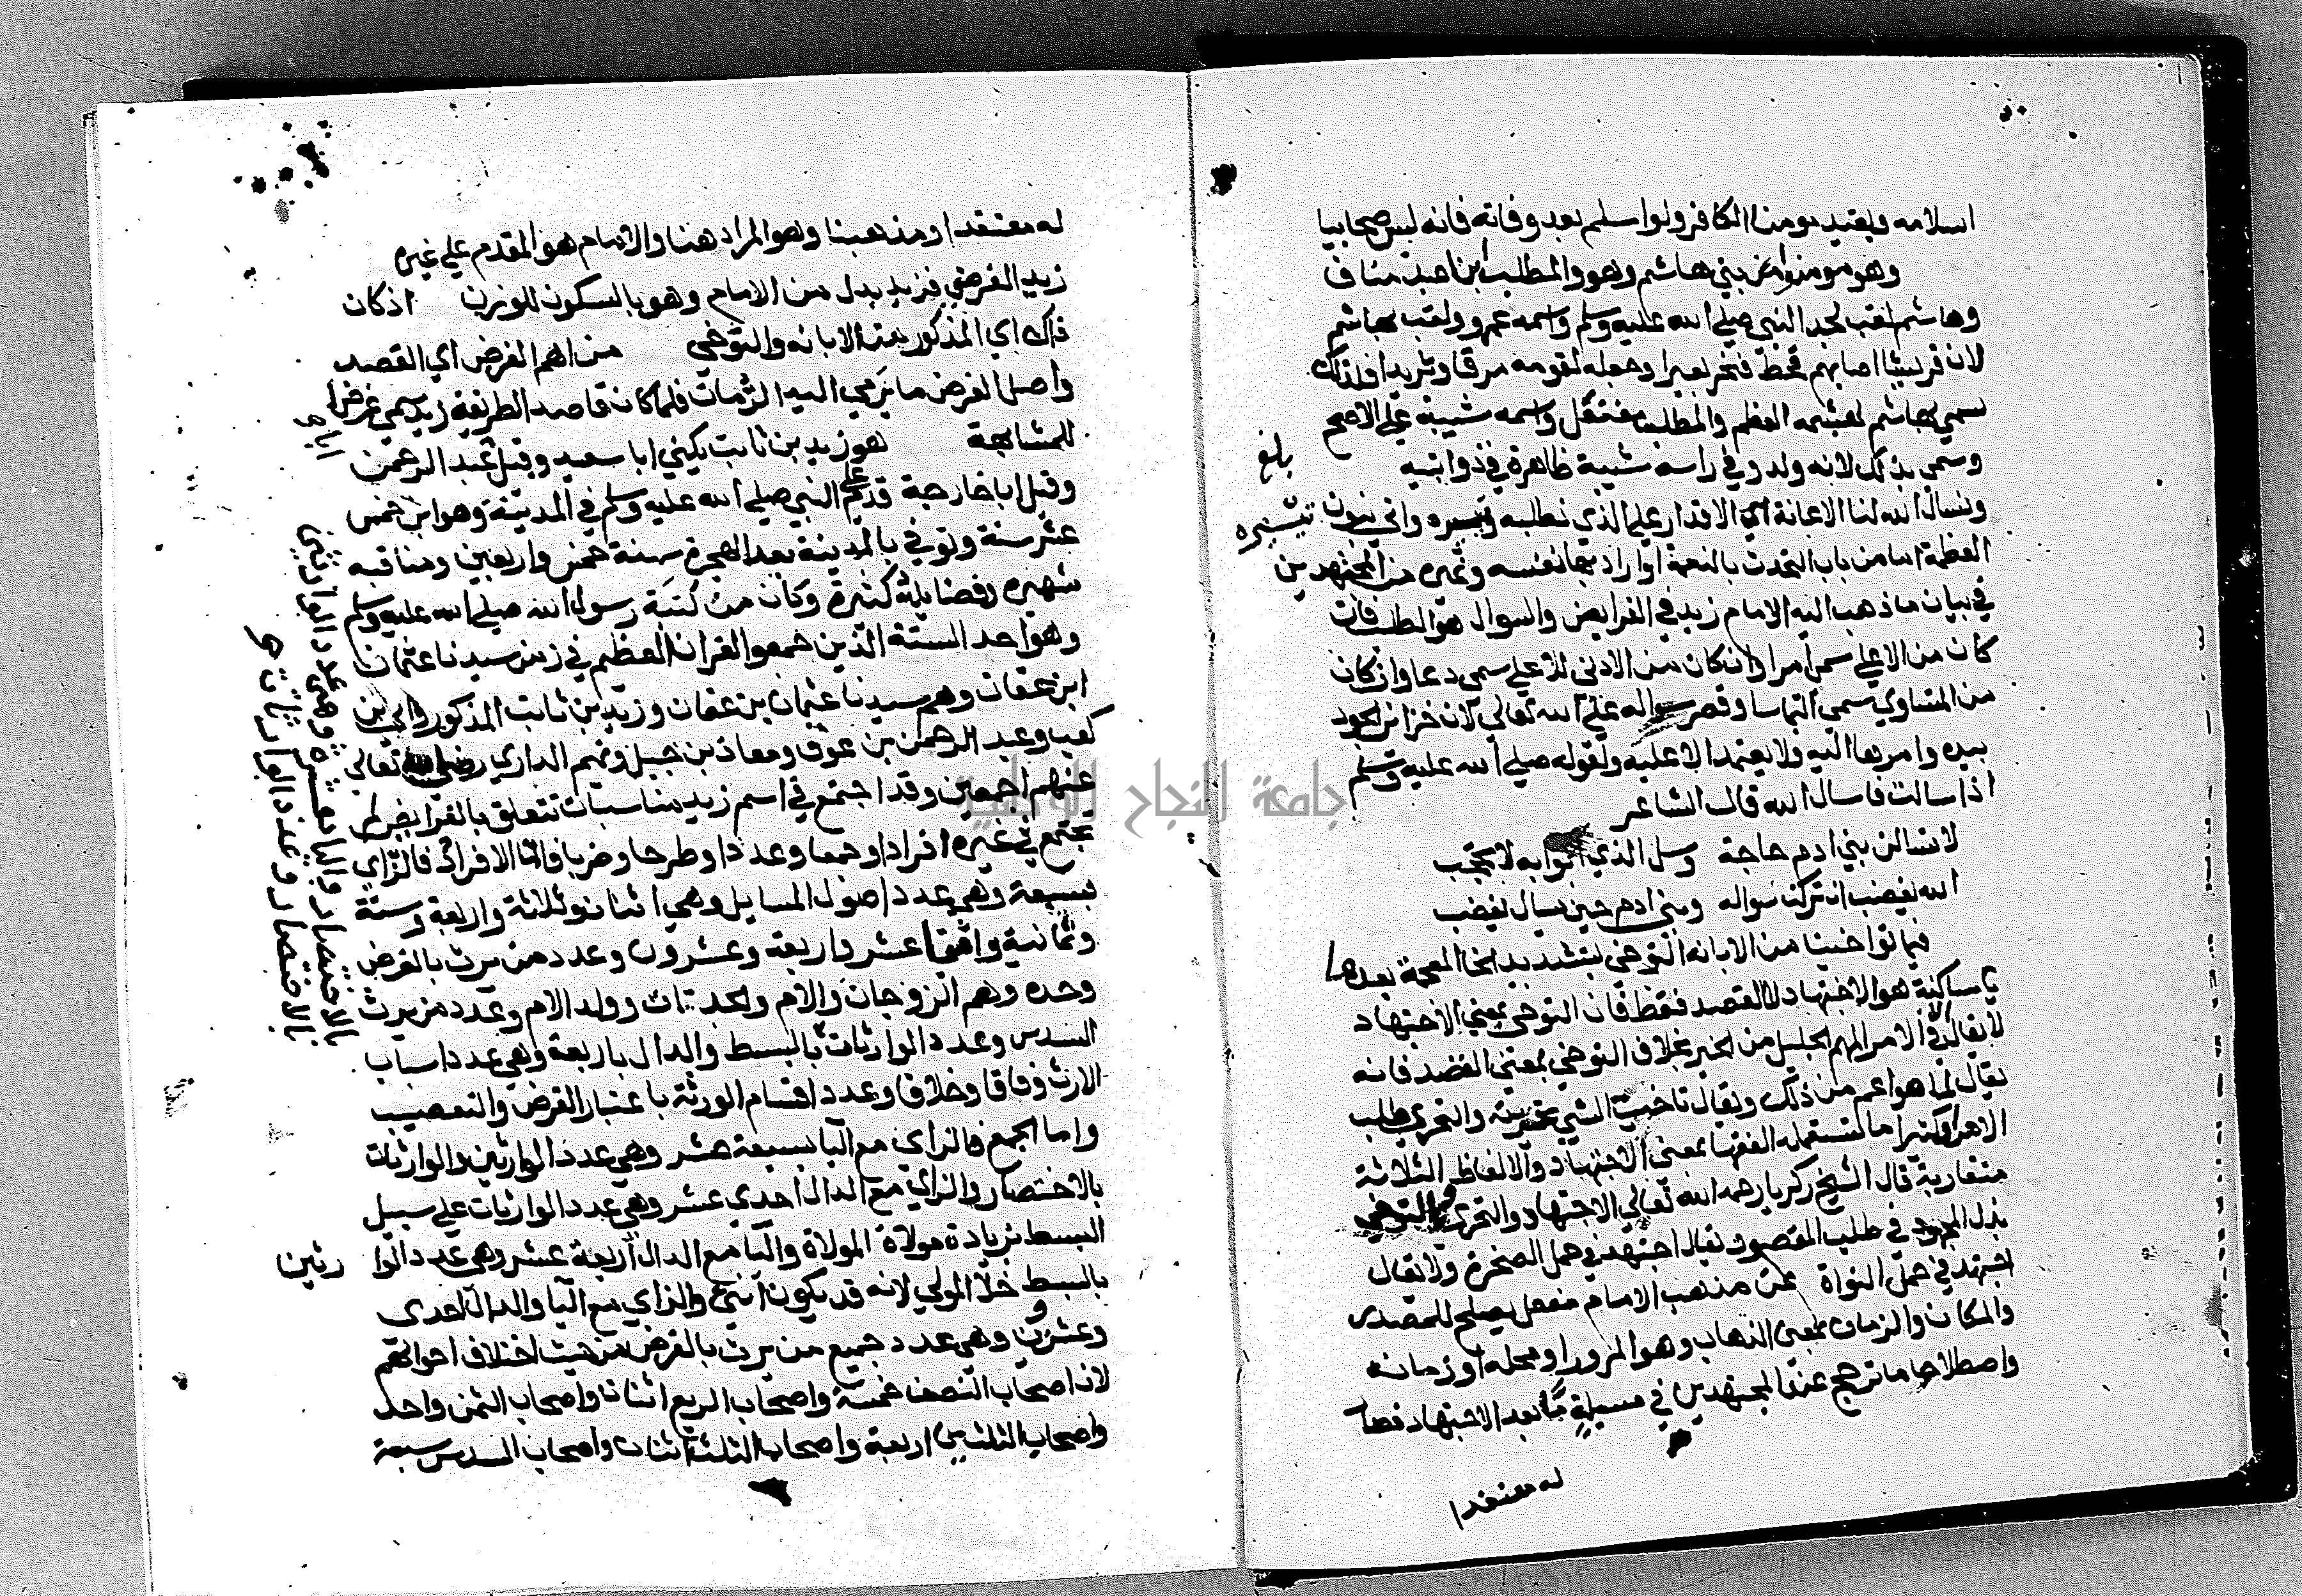 اسلامه وبقيد مومنا الكافر ولو اسلم بعد وفاته فانه ليس صحابيا
وهو مومنوا من بني هاشم وهو والمطلب ابنا عبد مناف
وهاشم لقب لجد النبي صلي الله عليه وسلم واسمه عمرو ولقب بهاشم
لان قريشا اصابهم قحط فنحر بعيرا وجعله لقومه مرقا وثريدا فلذلك
سمي بهاشم لهشمه العظم والمطلب مفتعل واسمه شيبة علي الاصح
وسمي بذلك لانه ولد وفي راسه شيبة ظاهرة في ذوابتيه
بلغ
ونسال الله لنا الاعانة اي الاقدار علي الذي نطلبه وتيسيره واتي بنون
تيسيره
العظمة اما من باب التحدث بالنعمة او اراد بها نفسه وغيره من المجتهدين
في بيان ما ذهب اليه الامام زيد في الفرايض والسوال هو الطلب فان
كان من الاعلي سمي امرا وان كان من الادني للاعلي سمي دعا وان كان
من المتساوي سمي التماسا وقصر سواله علي الله تعالي لان خزائن الجود
بيده وامرها اليه ولا يعتمد الا عليه ولقوله صلي الله عليه وسلم
اذا سالت فاسال الله قال الشاعر
لا تسالن بني ادم حاجة وسل الذي ابوابه لا تحجب
الله يغضب ان تركت سواله وبني ادم حين يسال يغضب
فيما توخينا من الابانه التوخي بتشديد الخا المعجمة بعدها
يا ساكنة هو الاجتهاد لا القصد فقط فان التوخي بمعني الاجتهاد
لا يقال الا في الامر المهم الجليل من الخير بخلاف التوخي بمعني القصد فانه
يقال لما هو اعم من ذلك ويقال تاخيت الشي تحريته والتحري طلب
الاحرا وكثيرا ما تستعمله الفقها بمعني الاجتهاد والالفاظ الثلاثة
متقاربة قال الشيخ زكريا رحمه الله تعالي الاجتهاد والتحري والتوخي
بذل المجهود في طلب المقصود يقال اجتهد في حمل الصخرة ولا يقال
اجتهد في حمل النواة عن مذهب الامام مفعل يصلح للمصدر
والمكان والزمان بمعني الذهاب وهو المرور او محله او زمانه
واصطلاحا ما ترجح عند المجتهدين في مسيلة ما بعد الاجتهاد فصار
له معتقدا
له معتقدا ومذهبنا وهو المراد هنا والامام هو المقدم علي غيره
زيد الفرضي فزيد بدل من الامام وهو بالسكون للوزن اذ كان
ذاك اي المذكور من الابانه والتوخي من اهم الغرض اي القصد
واصل الغرض ما يرمي اليه الرمات فلما كان قاصد الطريقة زيد سمي غرضا
للمشابهة هو زيد بن ثابت يكني ابا سعيد وقيل عبد الرحمن
وقيل ابا خارجة قدم النبي صلي الله عليه وسلم في المدينة وهو ابن خمس
عشر سنة وتوفي بالمدينة بعد الهجرة سنة خمس واربعين ومناقبه
شهيره وفضايله كثيرة وكان من كتبة رسول الله صلي الله عليه وسلم
وهو احد الستة الذين جمعوا القران العظيم في زمن سيدنا عثمان
ابن عفان وهم سيدنا عثمان بن عفان وزيد بن ثابت المذكور وابي بن
كعب وعبد الرحمن بن عوف ومعاذ بن جبل وتميم الداري رضي الله تعالي
عنهم اجمعين وقد اجتمع في اسم زيد مناسبات تتعلق بالفرايض لم
تجتمع في غيره افرادا وجمعا وعددا وطرحا وضربا فاما الافراد فالزاي
بسبعة وهي عدد اصول المسايل وهي اثنان وثلاثة واربعة وستة
وثمانية واثنا عشر واربعة وعشرون وعدد من يرث بالفرض
وحده وهم الزوجان والام والجدتان وولد الام وعدد من يرث
السدس وعدد الوارثات بالبسط والدال باربعة وهي عدد اسباب
الارث وفاقا وخلافا وعدد اقسام الورثة باعتبار الفرض والتعصيب
واما الجمع فالزاي مع اليا بسبعة عشر وهي عدد الوارثين والوارثات
بالاختصار والزاي مع الدال احدي عشر وهي عدد الوارثات علي سبيل
البسط بزيادة مولاة المولاة واليا مع الدال اربعة عشر وهي عدد الوا
رثين
بالبسط خلا المولي لانه قد يكون انثي والزاي مع اليا والدال احدي
وعشرون وهي عدد جميع من يرث بالفرض من حيث اختلاف احوالهم
لان اصحاب النصف خمسة واصحاب الربع اثنان واصحاب الثمن واحد
واصحاب الثلثين اربعة واصحاب الثلث اثنان واصحاب السدس سبعة
بالاختصار وعدد الوارثات
جامعة النجاح الوطنية